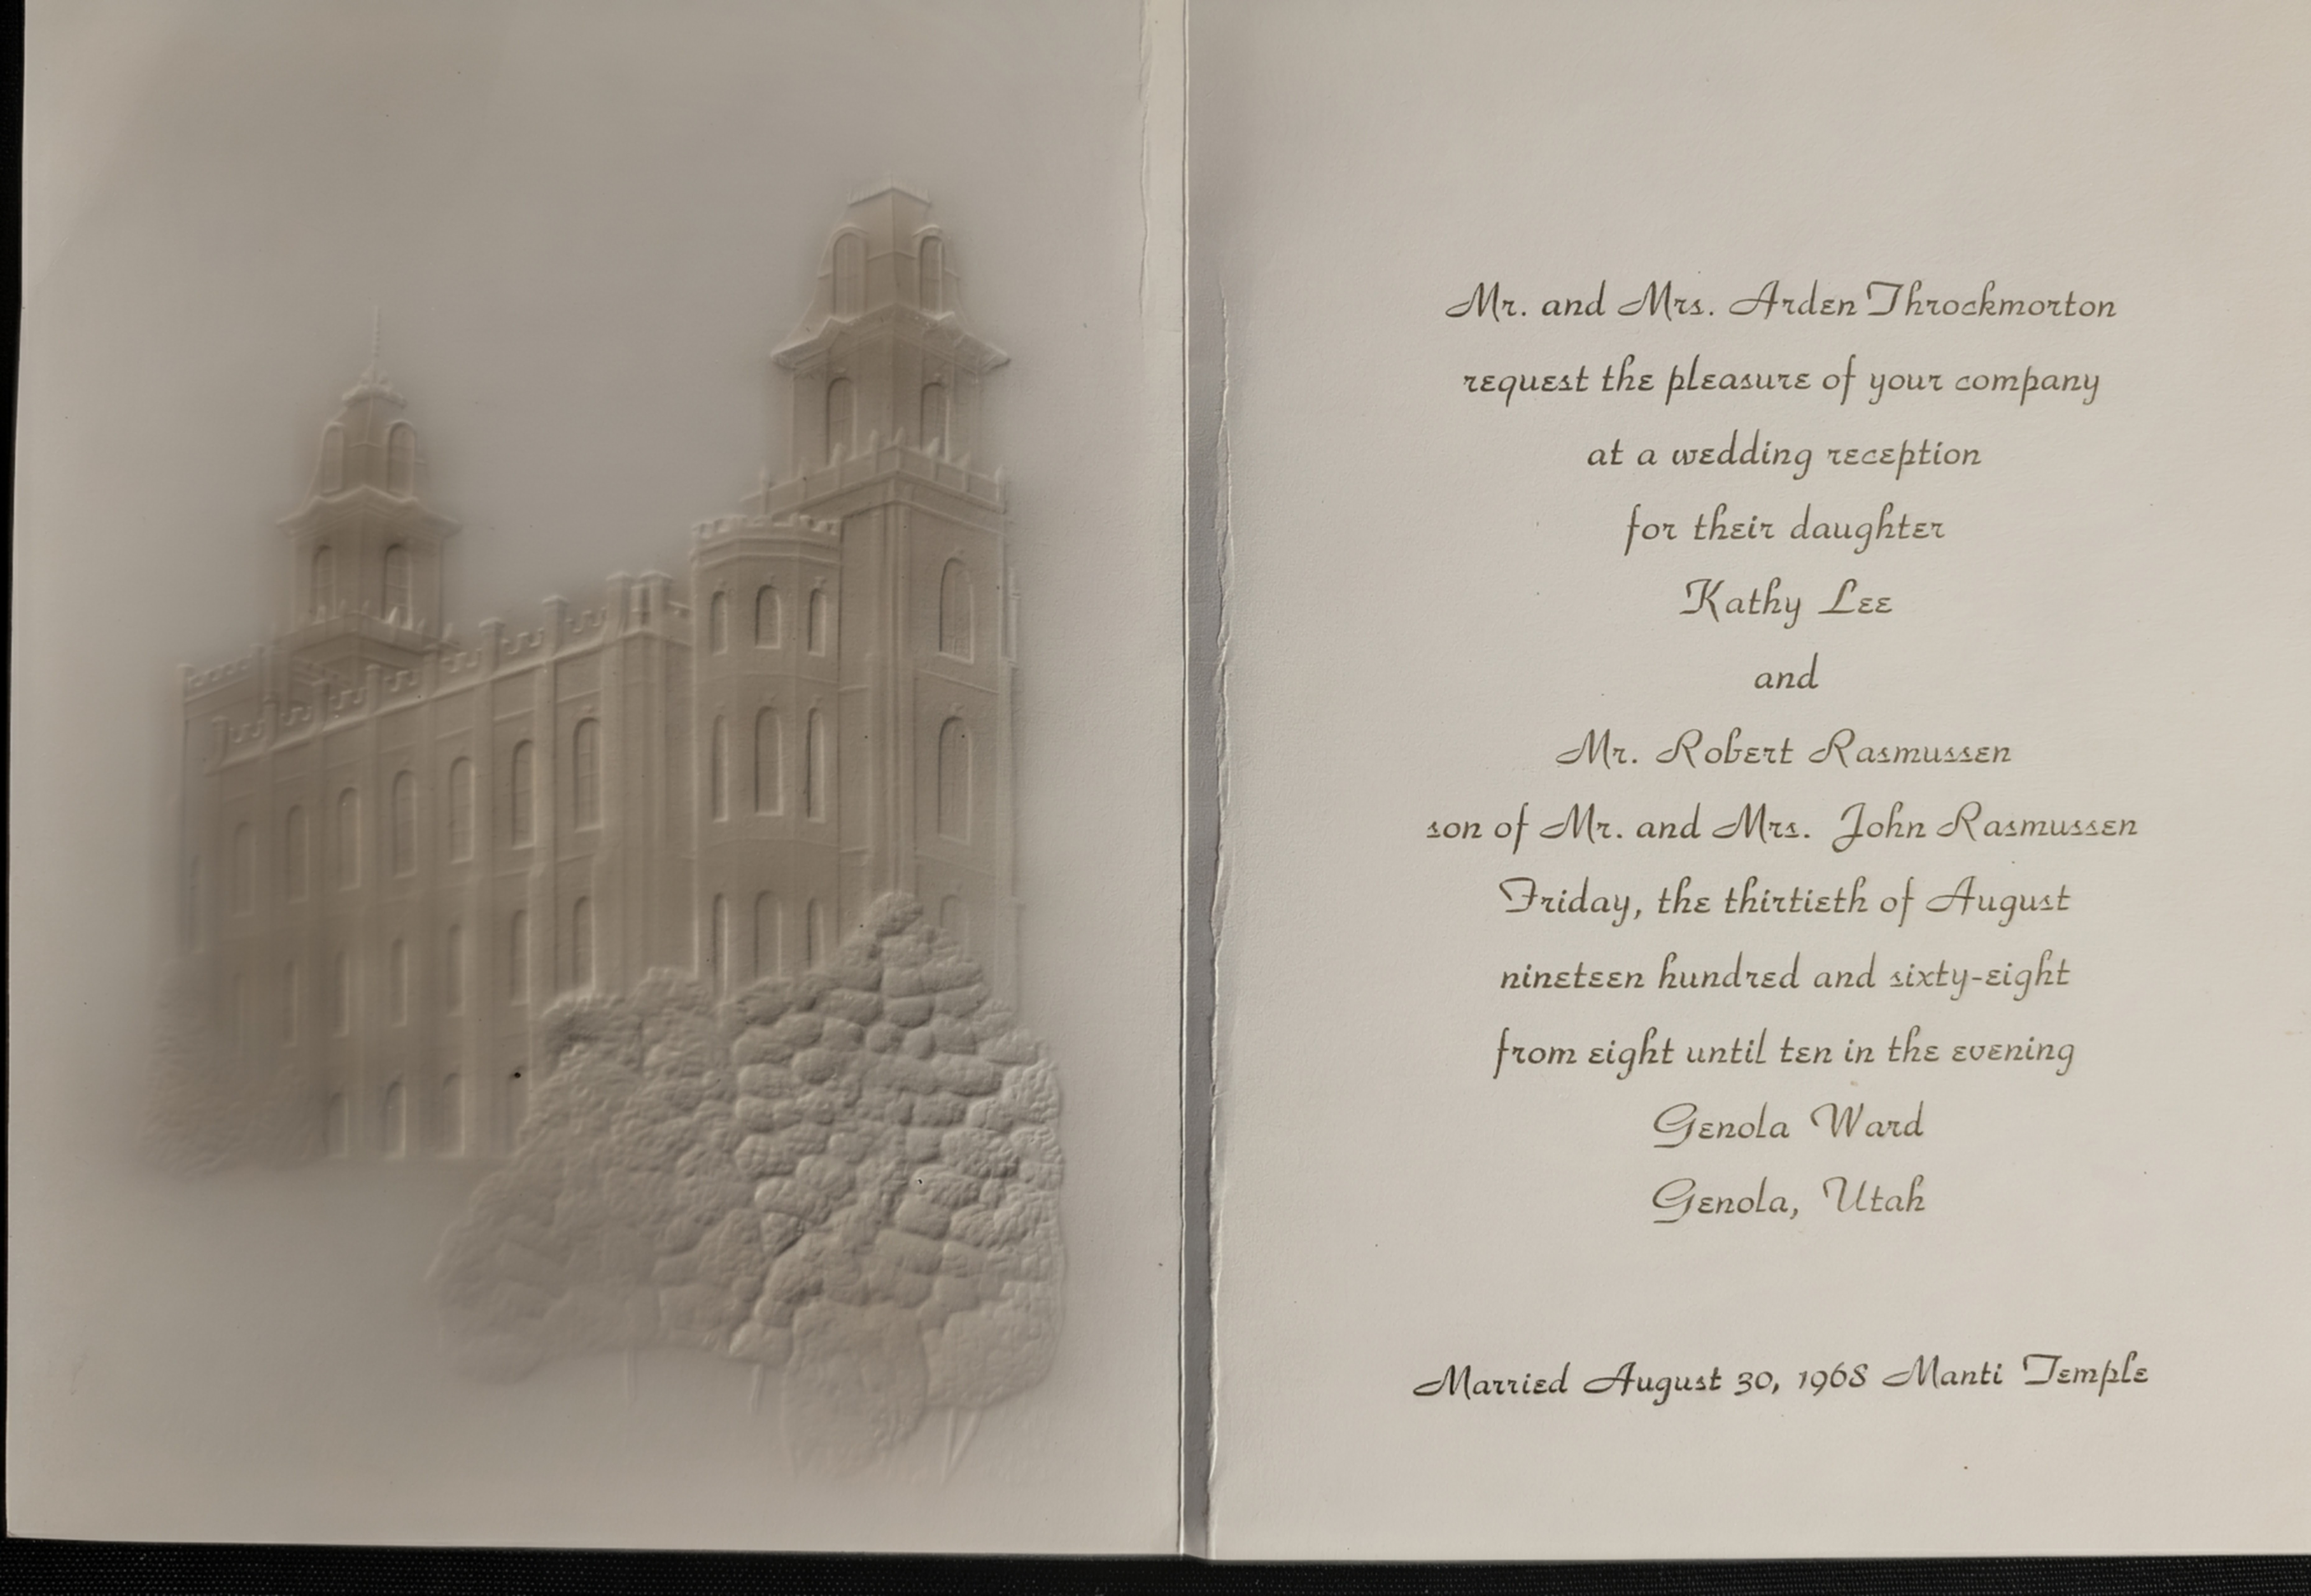 Mr. and Mrs. Arden Throckmorton
request the pleasure of your company
at a wedding reception
for their daughter
Kathy Lee
and
Mr. Robert Rasmussen
son of Mr. and Mrs. John Rasmussen
Friday, the thirtieth of August
nineteen hundred and sixty-eight
from eight until ten in the evening
Genola Ward
Genola, Utah
Married August 30, 1968 Manti Temple